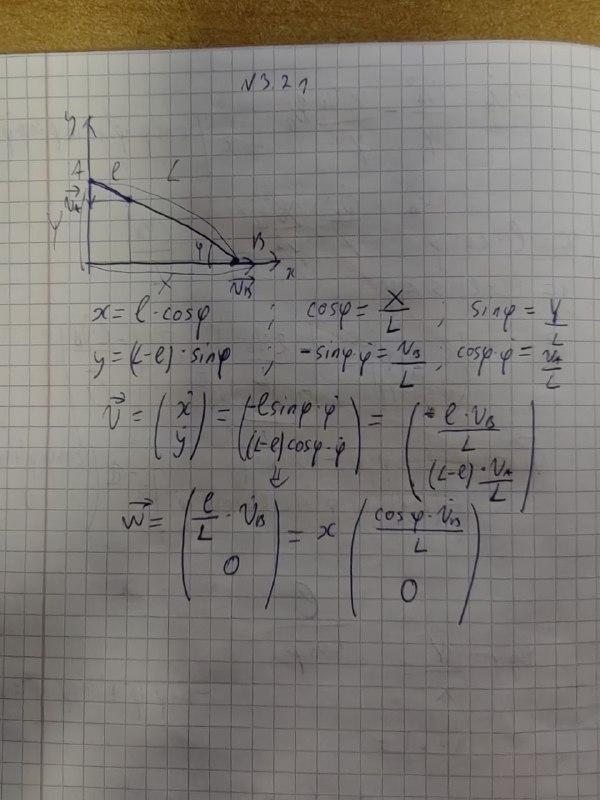 N 3.21
y
A l L
v⃗_A
Y φ B
X v⃗_B x
x = l · cosφ ; cosφ = X/L ; sinφ = Y/L
y = (L-l) · sinφ ; -sinφ·φ̇ = v_B/L ; cosφ·φ̇ = v_A/L
v⃗ = (ẋ ẏ) = (-l sinφ·φ̇ (L-l)cosφ·φ̇) = (l·v_B/L (L-l)·v_A/L)
w⃗ = (l/L · v̇_B 0) = x (cosφ·v̇_B/L 0)